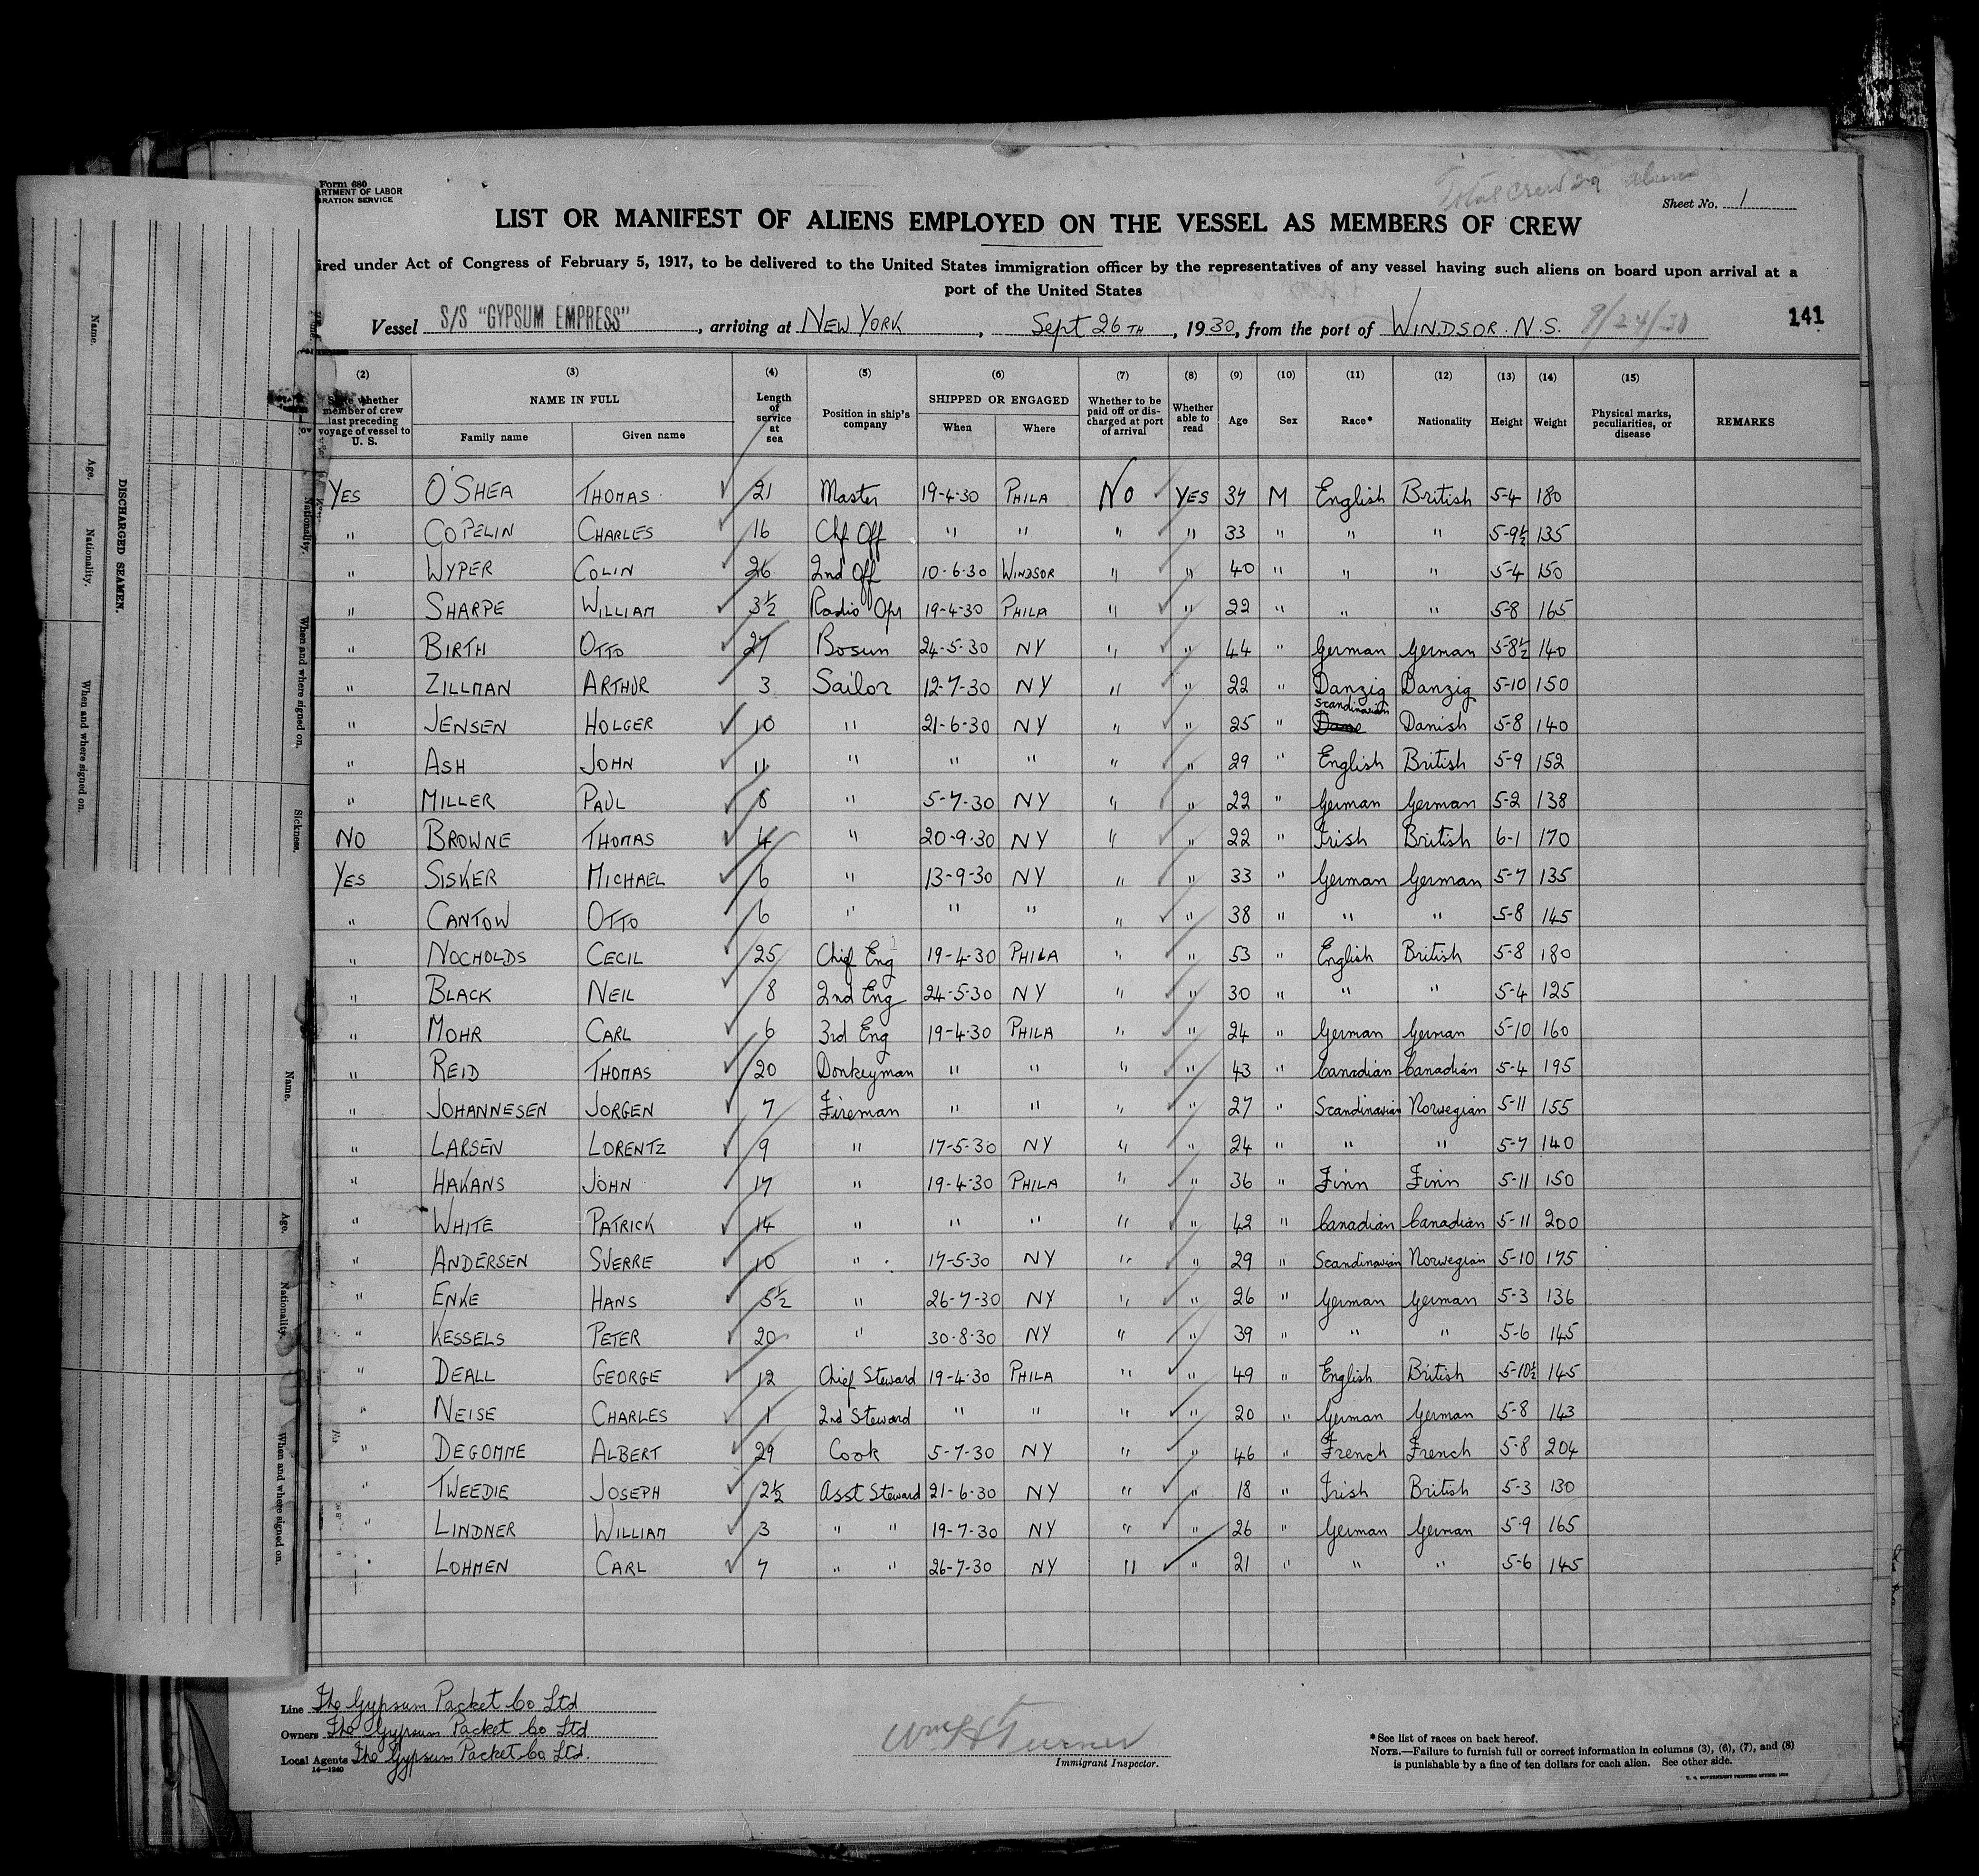 Form 680
ARTMENT OF LABOR
GRATION SERVICE
Total crew 29 aliens
Sheet No. 1
LIST OR MANIFEST OF ALIENS EMPLOYED ON THE VESSEL AS MEMBERS OF CREW
ired under Act of Congress of February 5, 1917, to be delivered to the United States immigration officer by the representatives of any vessel having such aliens on board upon arrival at a
port of the United States
Vessel S/S "GYPSUM EMPRESS", arriving at NEW YORK, Sept 26TH, 1930, from the port of WINDSOR. N.S. 9/24/30 141
(2) (3) (4) (5) (6) (7) (8) (9) (10) (11) (12) (13) (14) (15)
State whether member of crew last preceding voyage of vessel to U. S. NAME IN FULL Family name Given name Length of service at sea Position in ship's company SHIPPED OR ENGAGED When Where Whether to be paid off or discharged at port of arrival Whether able to read Age Sex Race* Nationality Height Weight Physical marks, peculiarities, or disease REMARKS
YES O'SHEA THOMAS 21 Master 19-4-30 PHILA NO YES 37 M English British 5-4 180
" COPELIN CHARLES 16 Chf Off " " " " 33 " " " 5-9½ 135
" WYPER COLIN 26 2nd Off 10-6-30 WINDSOR " " 40 " " " 5-4 150
" SHARPE WILLIAM 3½ Radio Opr 19-4-30 PHILA " " 22 " " " 5-8 165
" BIRTH OTTO 27 Bosun 24-5-30 NY " " 44 " German German 5-8½ 140
" ZILLMAN ARTHUR 3 Sailor 12-7-30 NY " " 22 " Danzig Danzig 5-10 150
" JENSEN HOLGER 10 " 21-6-30 NY " " 25 " Scandinavian Dane Danish 5-8 140
" ASH JOHN 11 " " " " " 29 " English British 5-9 152
" MILLER PAUL " 5-7-30 NY " " 22 " German German 5-2 138
NO BROWNE THOMAS 4 " 20-9-30 NY " " 22 " Irish British 6-1 170
YES SISKER MICHAEL 6 " 13-9-30 NY " " 33 " German German 5-7 135
" CANTOW OTTO 6 " " " " " 38 " " " 5-8 145
" NOCHOLDS CECIL 25 Chief Eng 19-4-30 PHILA " " 53 " English British 5-8 180
" BLACK NEIL 8 2nd Eng 24-5-30 NY " " 30 " " " 5-4 125
" MOHR CARL 6 3rd Eng 19-4-30 PHILA " " 24 " German German 5-10 160
" REID THOMAS 20 Donkeyman " " " " 43 " Canadian Canadian 5-4 195
" JOHANNESEN JORGEN 7 Fireman " " " " 27 " Scandinavian Norwegian 5-11 155
" LARSEN LORENTZ 9 " 17-5-30 NY " " 24 " " " 5-7 140
" HAKANS JOHN 17 " 19-4-30 PHILA " " 36 " Finn Finn 5-11 150
" WHITE PATRICK 14 " " " " " 42 " Canadian Canadian 5-11 200
" ANDERSEN SVERRE 10 " 17-5-30 NY " " 29 " Scandinavian Norwegian 5-10 175
" ENKE HANS 5½ " 26-7-30 NY " " 26 " German German 5-3 136
" KESSELS PETER 20 " 30-8-30 NY " " 39 " " " 5-6 145
" DEALL GEORGE 12 Chief Steward 19-4-30 PHILA " " 49 " English British 5-10½ 145
" NEISE CHARLES 1 2nd Steward " " " " 20 " German German 5-8 143
" DEGOMME ALBERT 29 Cook 5-7-30 NY " " 46 " French French 5-8 204
" TWEEDIE JOSEPH 2½ Asst Steward 21-6-30 NY " " 18 " Irish British 5-3 130
" LINDNER WILLIAM 3 " " 19-7-30 NY " " 26 " German German 5-9 165
" LOHMEN CARL 7 " " 26-7-30 NY " " 21 " " " 5-6 145
Line The Gypsum Packet Co Ltd
Owners The Gypsum Packet Co Ltd
Local Agents The Gypsum Packet Co Ltd.
14—1240
Wm H Turner
Immigrant Inspector.
*See list of races on back hereof.
NOTE.—Failure to furnish full or correct information in columns (3), (6), (7), and (8)
is punishable by a fine of ten dollars for each alien. See other side.
Name.
Age.
Nationality.
When and where signed on.
DISCHARGED SEAMEN.
Nationality.
When and where signed on.
Sickness.
Name.
Age.
Nationality.
When and where signed on.